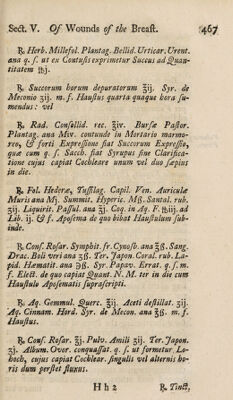 Sect. V. Of Wounds of the Breast. 467
℞. Herb. Millefol. Plantag. Bellid. Urticar. Urent.
ana q. s. ut ex Contusis exprimetur Succus ad Quan-
titatem ℔j.
℞ Succorum horum depuratorum ℥ij. Syr. de
Meconio ʒij. m. f. Haustus quarta quaque hora su-
mendus: vel
℞. Rad. Consolid. rec. ℥iv. Bursæ Pastor.
Plantag. ana Miv. contunde in Mortario marmo-
reo, & forti Expressione fiat Succorum Expressio,
quæ cum q. s. Sacch. fiat Syrupus sine Clarifica-
tione cujus capiat Cochleare unum vel duo sæpius
in die.
℞. Fol. Hederæ, Tussilag. Capil. Ven. Auriculæ
Muris ana Mj. Summit. Hyperic. Mß. Santal. rub.
ʒij. Liquirit. Passul. ana ℥j. Coq. in Aq. F. ℔iij. ad
Lib. ij. & f. Aposema de quo bibat Haustulum sub-
inde.
℞. Cons. Rosar. Symphit. fr. Cynosb. ana ℥ß. Sang.
Drac. Boli veri ana ʒß. Ter. Japon. Coral. rub. La-
pid. Hæmatit. ana ℈ß. Syr. Papav. Errat. q. s. m.
f. Elect. de quo capiat Quant. N. M. ter in die cum
Haustulo Aposematis suprascripti.
℞. Aq. Gemmul. Querc. ℥ij. Aceti destillat. ʒij.
Aq. Cinnam. Hord. Syr. de Mecon. ana ℥ß. m. f.
Haustus.
℞. Cons. Rosar. ℥j. Pulv. Amili ʒij. Ter. Japon.
ʒj. Album. Over. conquassat. q. s. ut formetur Lo-
hoch, cujus capiat Cochlear. singulis vel alternis ho-
ris dum perstet fluxus.
H h 2 ℞. Tinct,